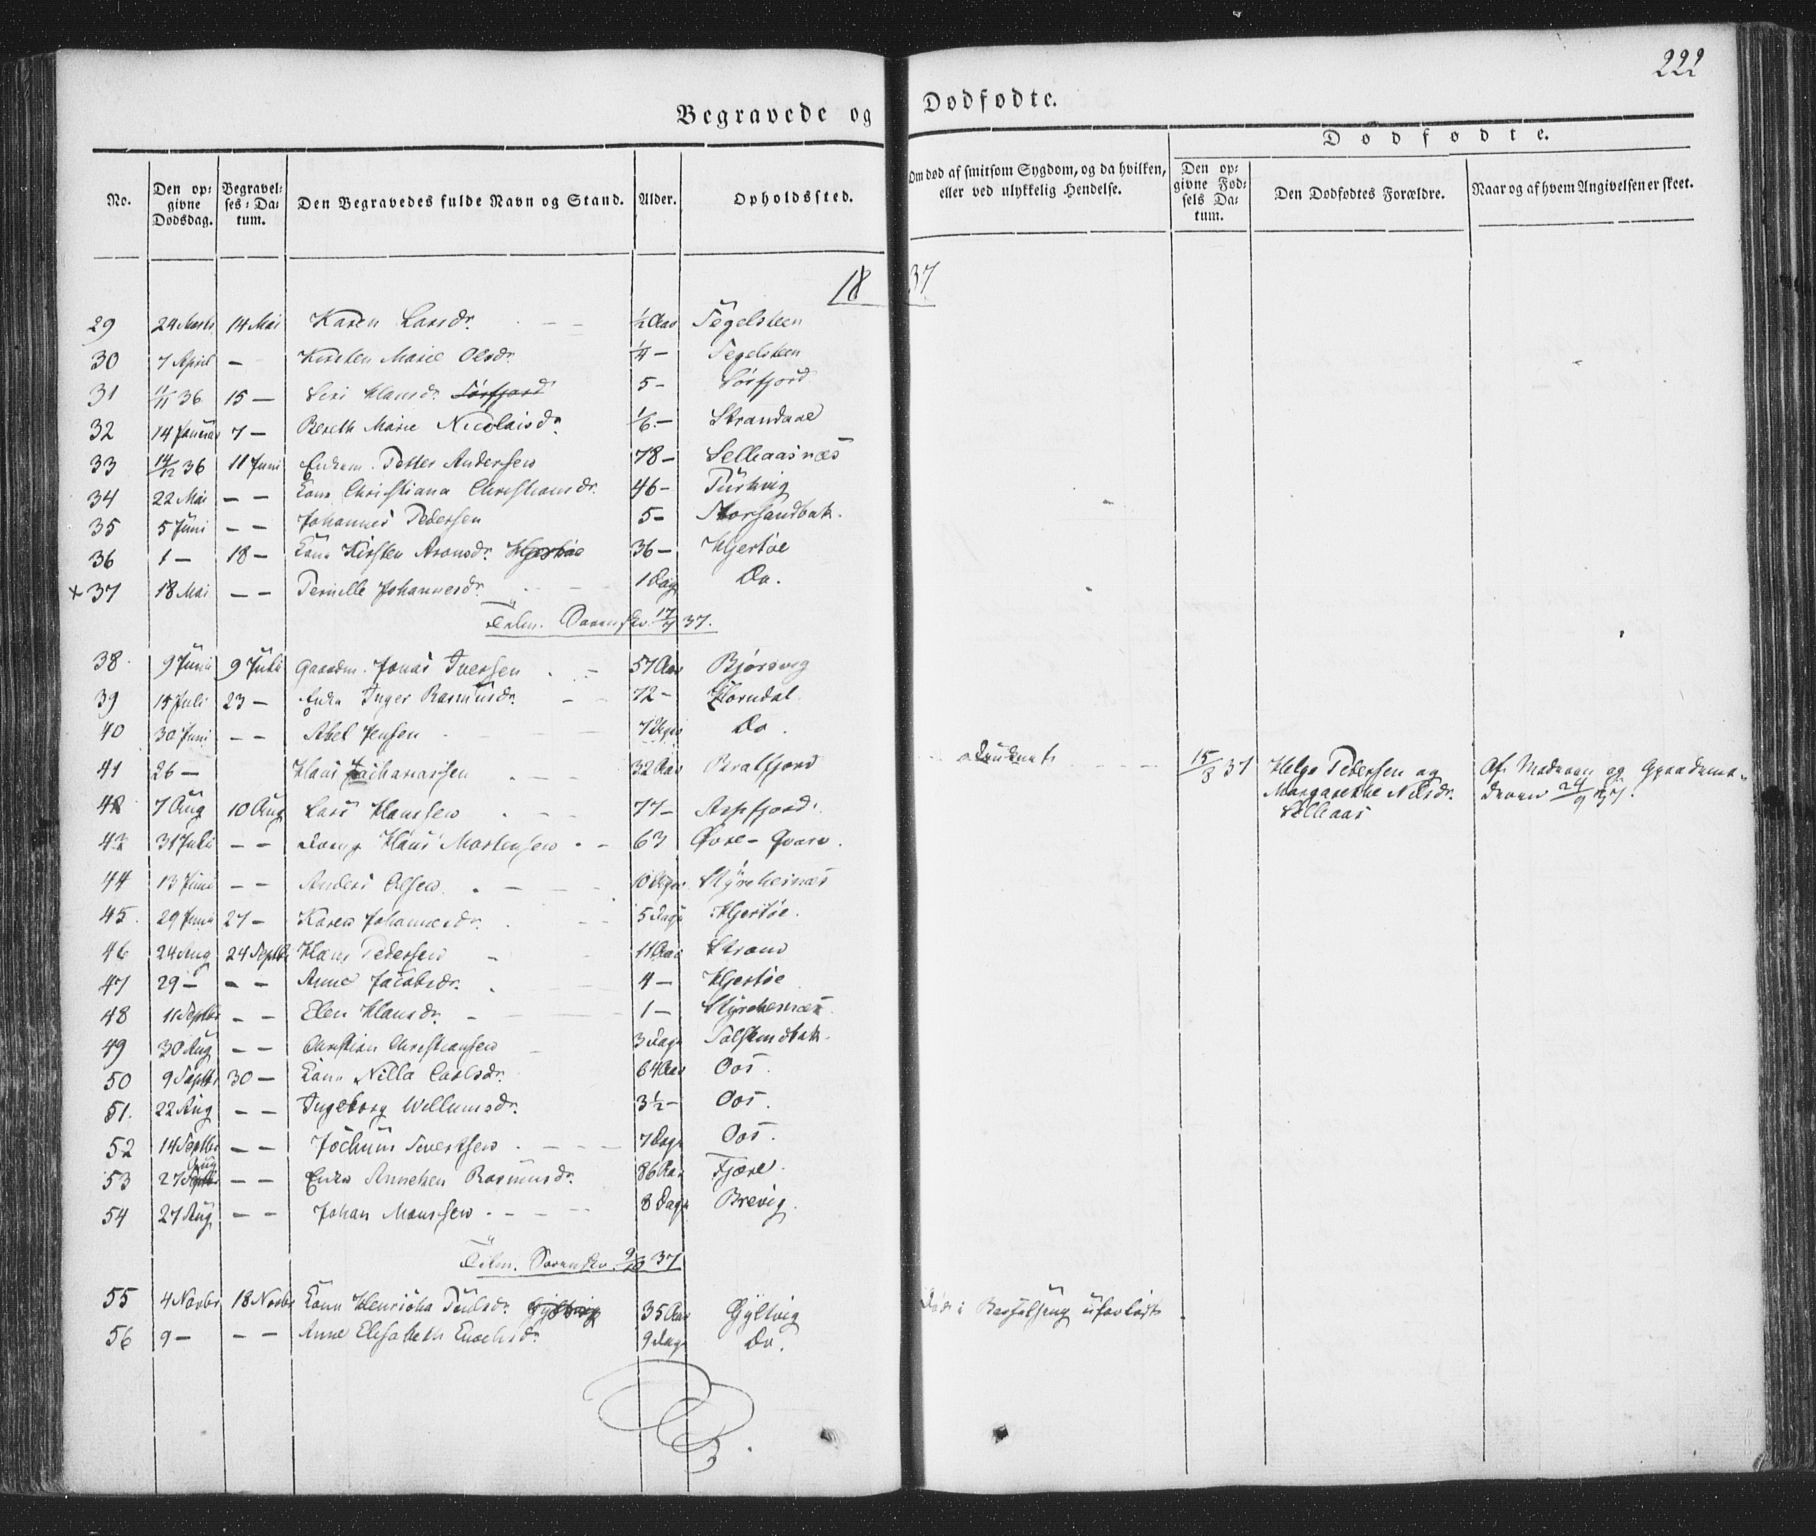 222
Begravede og Dødfødte.
Dødfødte.
No.
Den opgivne Dødsdag.
Begravelses-Datum.
Den Begravedes fulde Navn og Stand.
Alder.
Opholdssted.
Om død af smitsom Sygdom, og da hvilken, eller ved ulykkelig Hendelse.
Den opgivne Fødsels Datum.
Den Dødfødtes Forældre.
Naar og af hvem Angivelsen er skeet.
1837
29 24 Marts 14 Mai Karen Larsdr. ½ Aar Tegelsteen
30 7 April - Kirsten Marie Olsdr. ¼ - Tegelsteen
31 11/11 36 15 - Siri Hansdr. Sørfjord 5 - Sørfjord
32 14 Januar 7 - Bereth Marie Nicolaisdr. 1/6 - Strandaae
33 14/12 36 11 Juni Enkem. Petter Andersen 78 - Selliaasnæs
34 22 Mai - - Kone Christiana Christiansdr. 46 -
35 5 Juni - - Johannes Pedersen 5 - Storsandbak.
36 1 - 18 - Kone Kirsten Aronsdr. Hjertøe 36 - Hjertøe
x 37 18 Mai - - Pernille Johannesdr. 1 Dag Do.
Tilm. Sorenskr. 17/7 37.
38 9 Juni 9 Juli Gaardm. Jonas Iversen 57 Aar Bjørsvig
39 15 Juli 23 - Enke Inger Rasmusdr. 72 - Horndal
40 30 Juni - - Abel Jensen 7 Uger Do.
41 26 - Hans Zachariassen 32 Aar druknet
15/8 37 Helge Pedersen og Af Moderen og Gjordemo-
Margarethe Nilsdr. deren 24/9 37.
Selliaas
42 7 Aug 10 Aug Lars Hanssen 77 - Aspfjord.
43 31 Juli - - Hans Mortensen 63 Øvre-Qvarv.
44 13 Juni - - Anders Olsen 10 Uger Styrchesnæs
45 29 Juni 27 - Karen Johannesdr. 5 Dage Hjertøe.
46 24 Aug 24 Septbr Hans Pedersen 11 Aar Strand
47 29 - - - Anne Jacobsdr. 4 - Hjertøe
48 11 Septbr - - Elen Hansdr. 1 - Styrchesnæs
49 30 Aug - - Christian Christiansen 3 Dage
50 9 Septbr 30 - Kone Nilla Carlsdr. 64 Aar Oos.
51. 22 Aug - - Ingeborg Willumsdr. 3½ - Oos.
52 14 Septbr - - Jochum Sivertsen 7 Dage Oos.
53 27 Septbr Aug - - Enke Annichen Rasmusdr. 86 Aar Fjære.
54 27 Aug - - Johan Monssen 8 Dage Brevig.
Tilm. Sorenskr. 9/10 37
55 4 Novbr 18 Novbr Kone Henricha Poulsdr. Gyltvig 35 Aar Gyltvig Døde i Barselseng uforløst.
56 9 - - - Anne Elisabeth Enochsdr. 9 Dage Do.